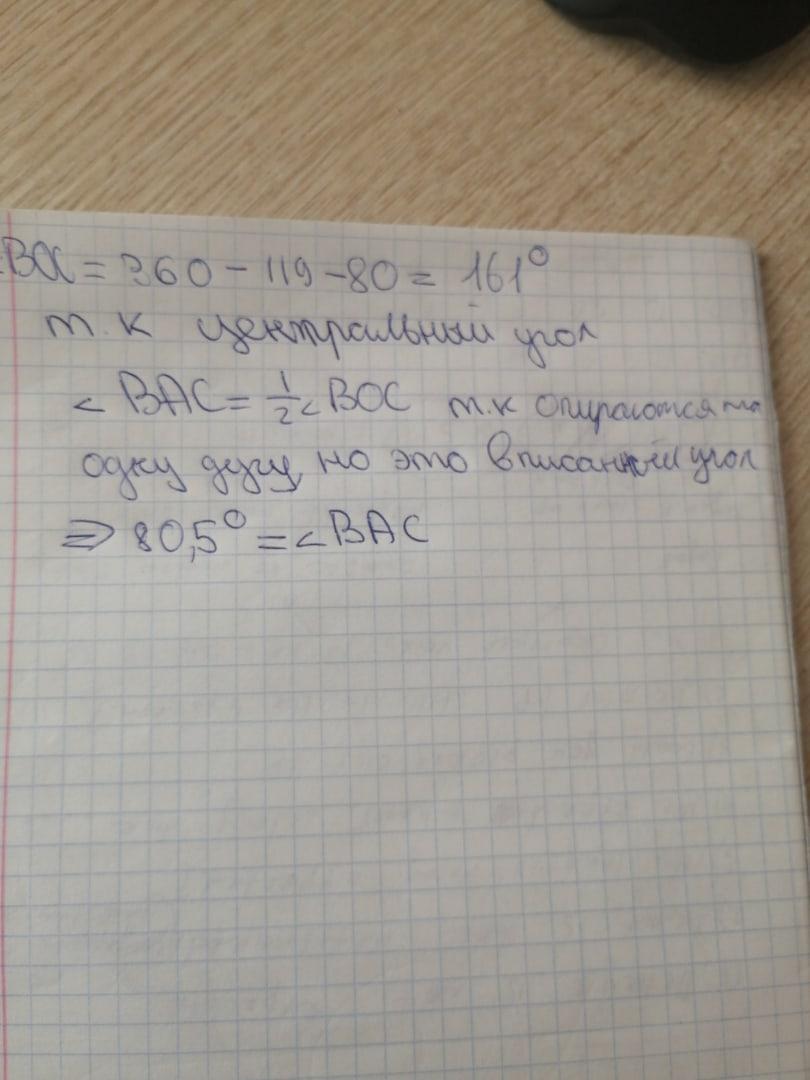 BOC = 360 - 119 - 80 = 161°
т.к центральный угол
< BAC = 1/2 < BOC т.к опираются на
одну дугу, но это вписанный угол
⇒ 80,5° = < BAC